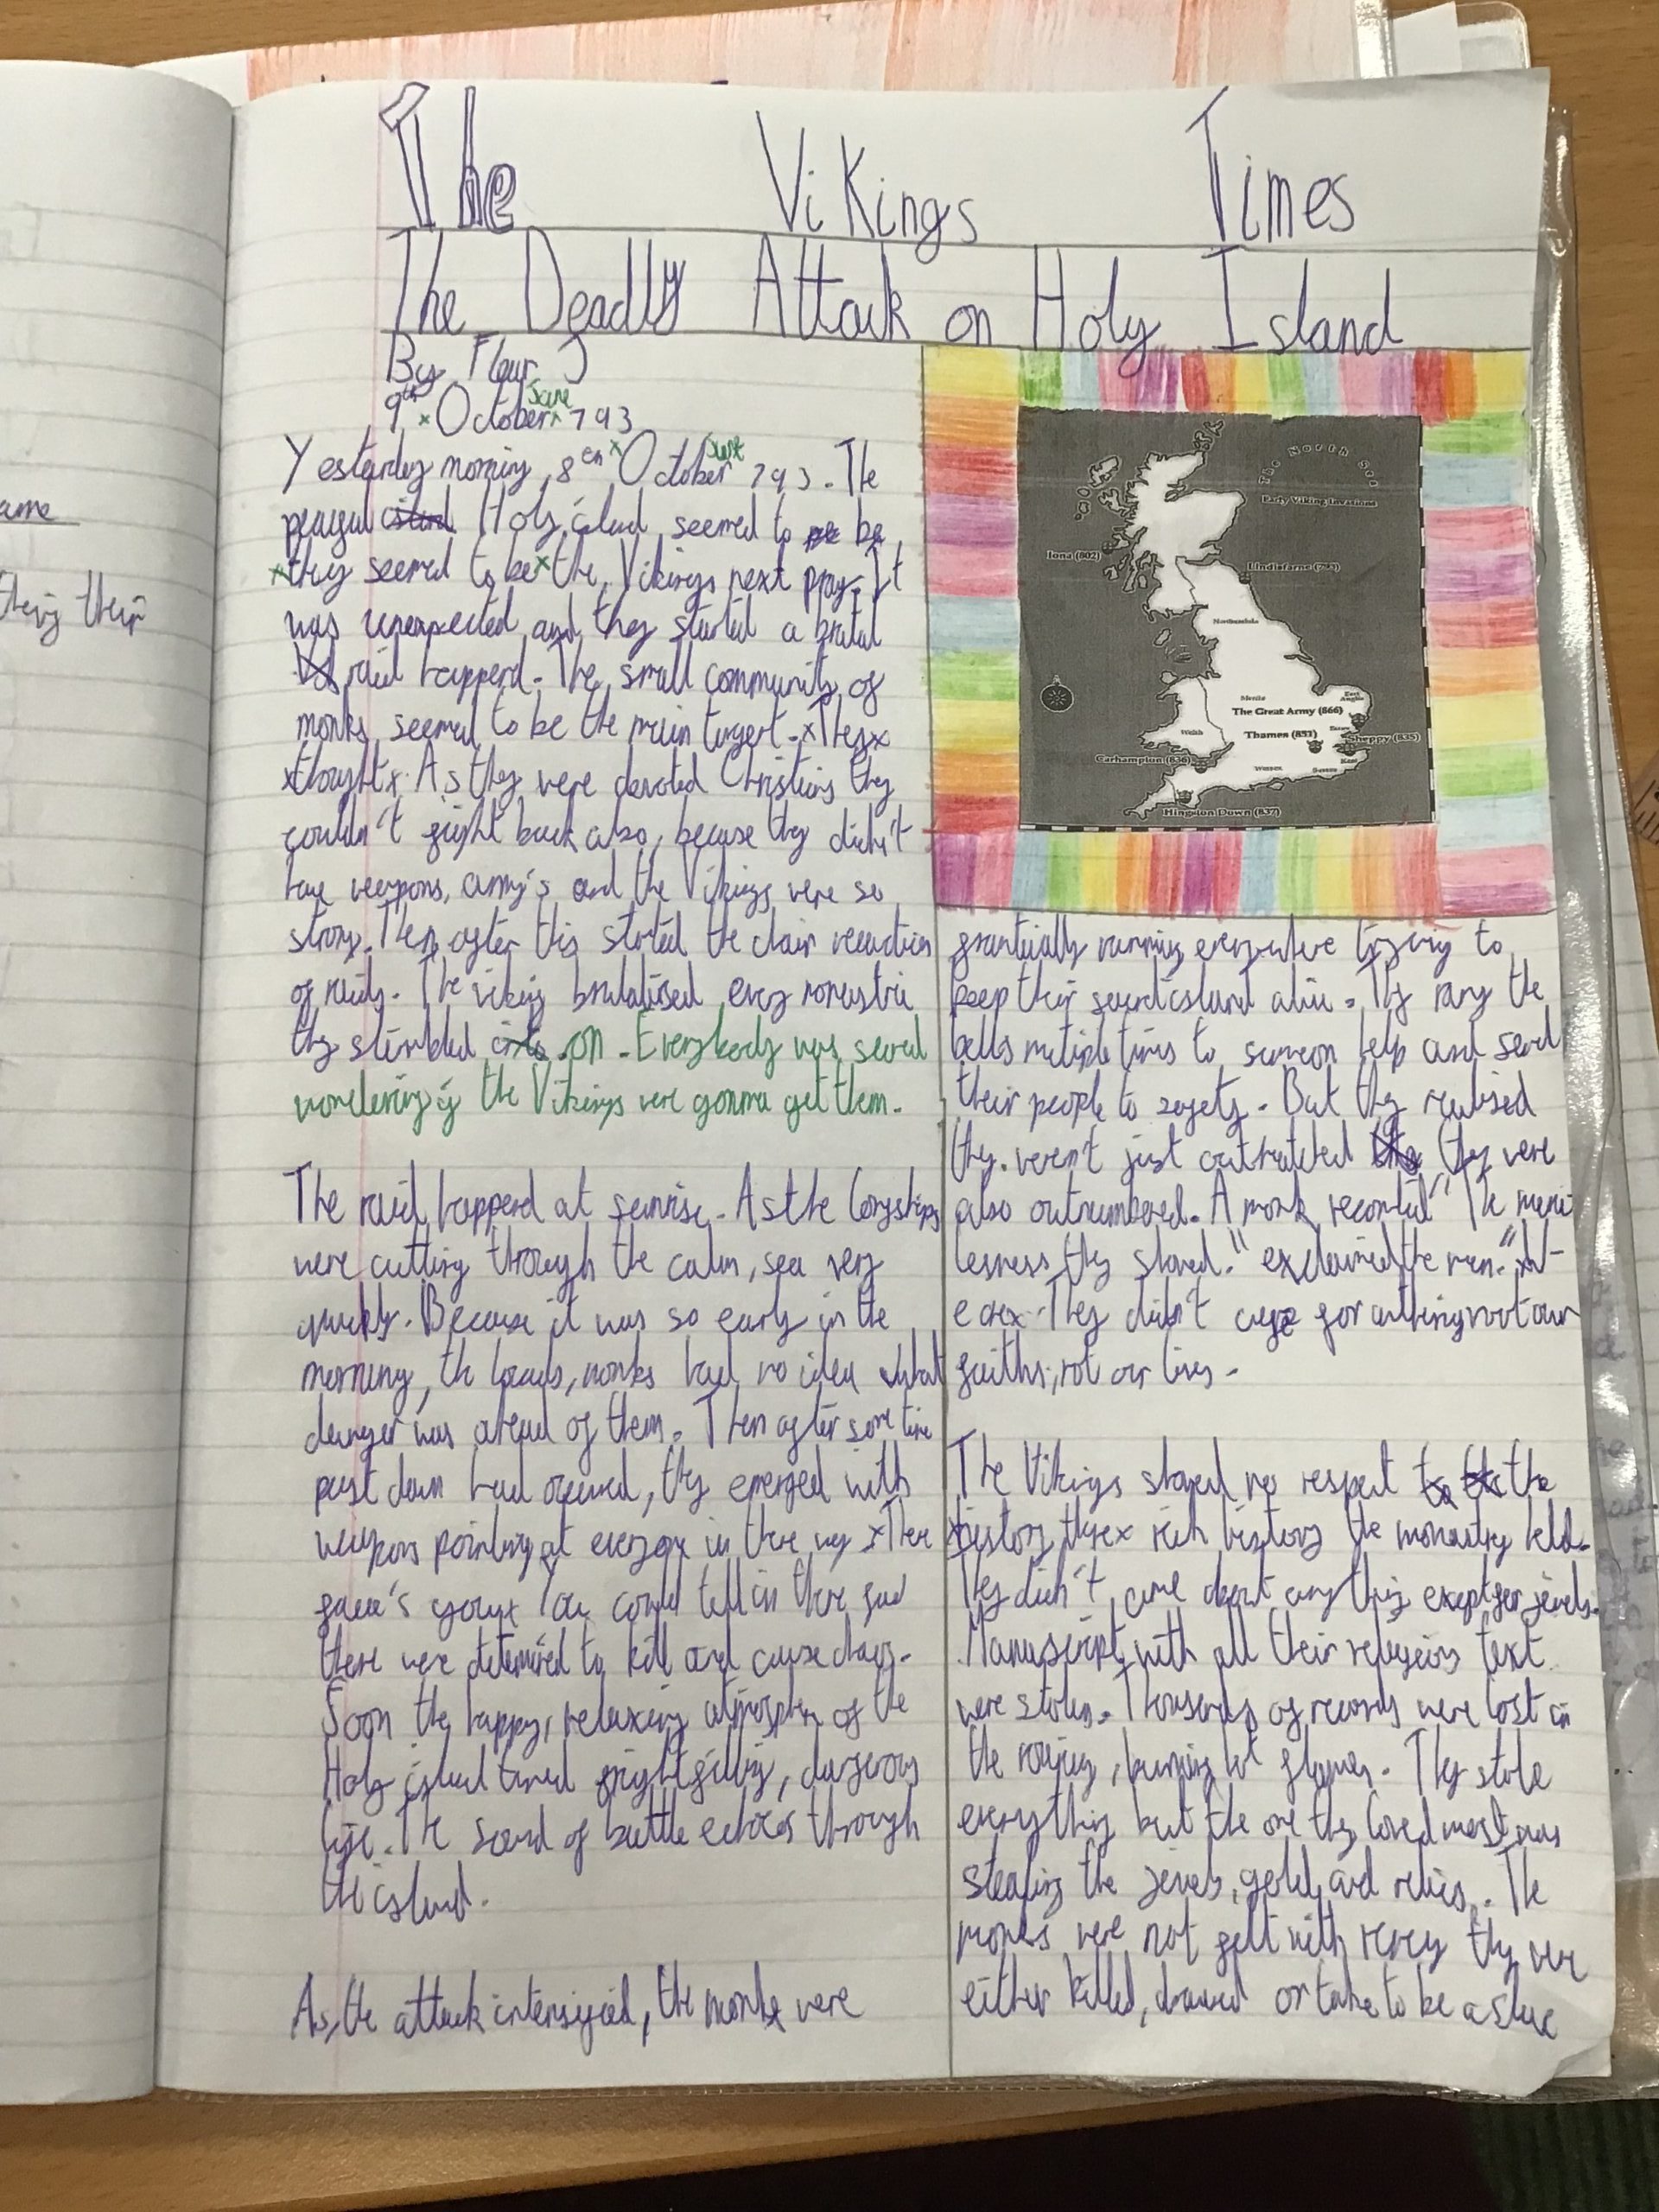 The Vikings Times
The Deadly Attack on Holy Island
By Fleur J
9th October June 793
Yesterday morning, 8th October June 793. The
peacful island Holy island seemed to be
they seemed to be the Vikings next pray. It
was unexpected and they started a brutal
raid happend. The small community of
monks seemed to be the main target. They
thought. As they were devoted Christians they
couldn't fight back also, because they didn't
have weapons, army's and the Vikings were so
strong. Then after this started the chain reaction
of raids. The viking brutalised every monastrie
they stumbled into on. Everybody was scared
wondering if the Vikings were gonna get them.
The raid happend at sunrise. As the longships
were cutting through the calm, sea very
quickly. Because it was so early in the
morning, the locals, monks had no idea what
danger was ahead of them. Then after some time
past dawn had , they emerged with
weapons pointing at everyone in there way There
face's you You could tell in there face
there were determined to kill and cause chaos.
Soon the happy, relaxing atmosphere of the
Holy island turned frightfilling, dangerous
life. The sound of battle echoes through
the island.
As, the attack intensified, the monks were
frantically running everywhere trying to
keep their sacred island alive. They rang the
bells mutiple times to sumon help and send
their people to safety. But they realised
they weren't just outmatched they were
also outnumbered. A monk recorded "The merci
lessness they showed." exclaimed the man.
They didn't care for anthing not our
faiths, not our lives.
The Vikings showed no respect to the the
history there rich history the monastry held.
They didn't care about anything exept for jewels.
Manuscript with all their religious text
were stolen. Thousands of records were lost in
the roaring, burning hot flames. They stole
everything but the one they loved most was
stealing the jewels, gold and relics. The
monks were not gelt with mercy they were
either killed, drowned or take to be a slave
The North Sea
Early Viking Invasions
Iona (802)
Lindisfarne (793)
Northumbria
Mercia
East Anglia
The Great Army (866)
Welsh
Thames (851)
Essex
Sheppy (835)
Carhampton (836)
Wessex
Sussex
Kent
Hingston Down (837)
ame
their